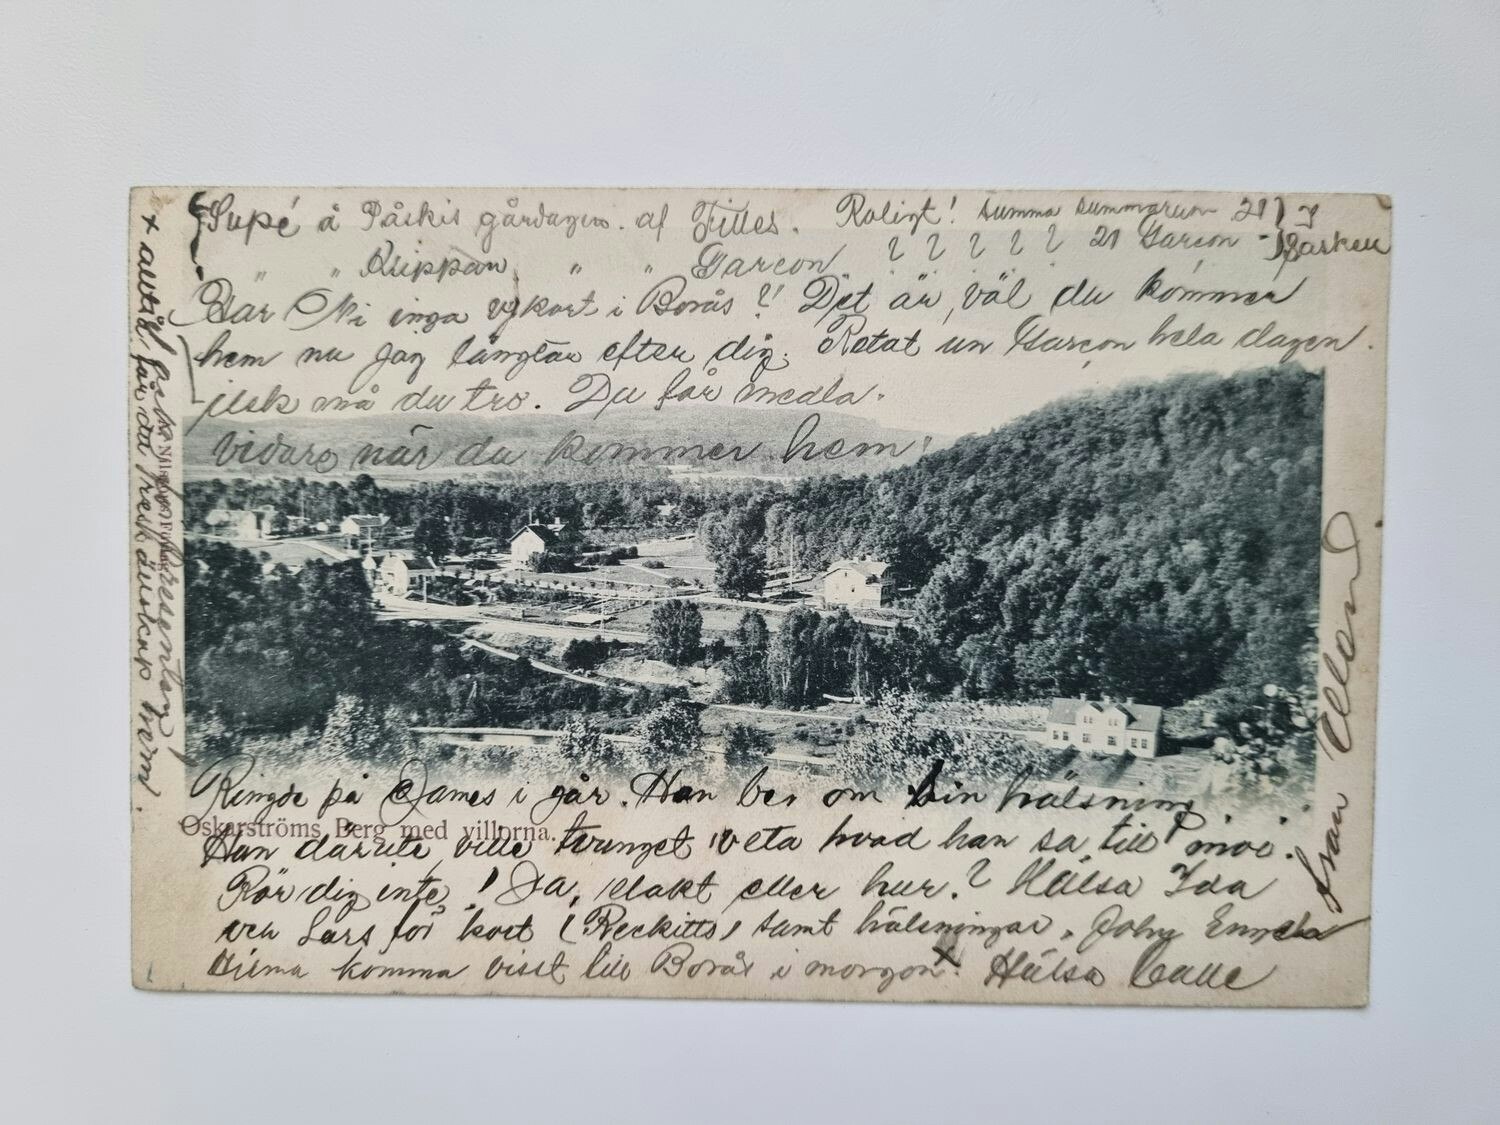 Supé å Påskis gårdagen. af Filles. Roligt! summa summarum 21
" " Klippan " " Garcon ? ? ? ? ? 21 Garcon
Har Ni inga vykort i Borås?! Det är väl du kommer
hem nu jag längtar efter dig. Retat un Garcon hela dagen.
ilsk må du tro. Du får medla.
vidare når du kommer hem!
Ringde på James i går. Han ber om hälsning.
Oskarströms Berg med villorna.
Han därute ville tvunget veta hvad han sa till moi.
Rör dig inte! Sa, elakt eller hur? Hälsa Ida
och Lars för kort (Reckitts) samt hälsningar. John
Hilma komma visst till Borås i morgon x. Hälsa Calle
från
x får det fresk önskap hem.